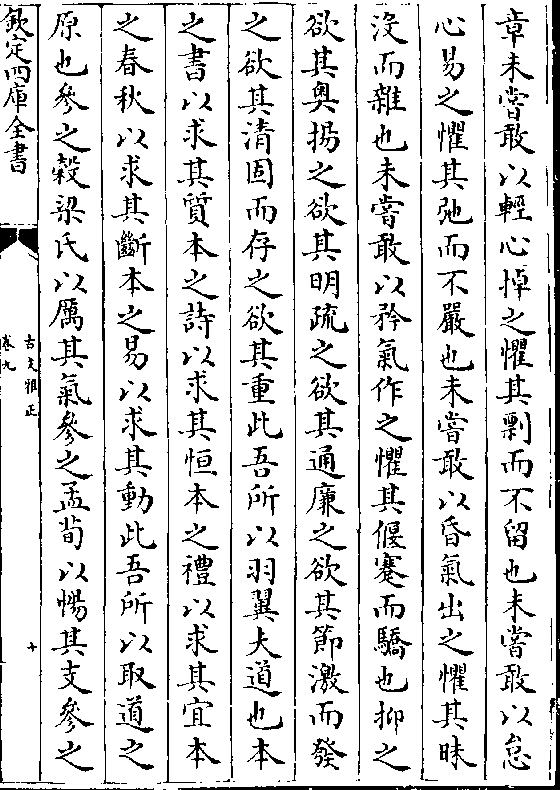 章未嘗敢以輕心掉之懼其剽而不留也未嘗敢以怠
心易之懼其弛而不嚴也未嘗敢以昏氣出之懼其昧
沒而雜也未嘗敢以矜氣作之懼其偃蹇而驕也抑之
欲其奥揚之欲其明疏之欲其通廉之欲其節激而發
之欲其清固而存之欲其重此吾所以羽翼夫道也本
之書以求其質本之詩以求其恒本之禮以求其宜本
之春秋以求其斷本之易以求其動此吾所以取道之
原也參之穀梁氏以厲其氣參之孟荀以暢其支參之
欽定四庫全書
古文雅正
卷九
十